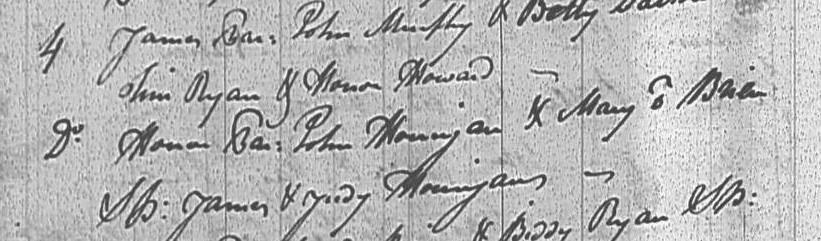 4 James Par: John Murphy & Betty
Ryan & Honor Howard —
Do. Honor Par: John Hourigan & Mary O Brien
Sp: James & Judy Hourigans —
& Biddy Ryan Sp: